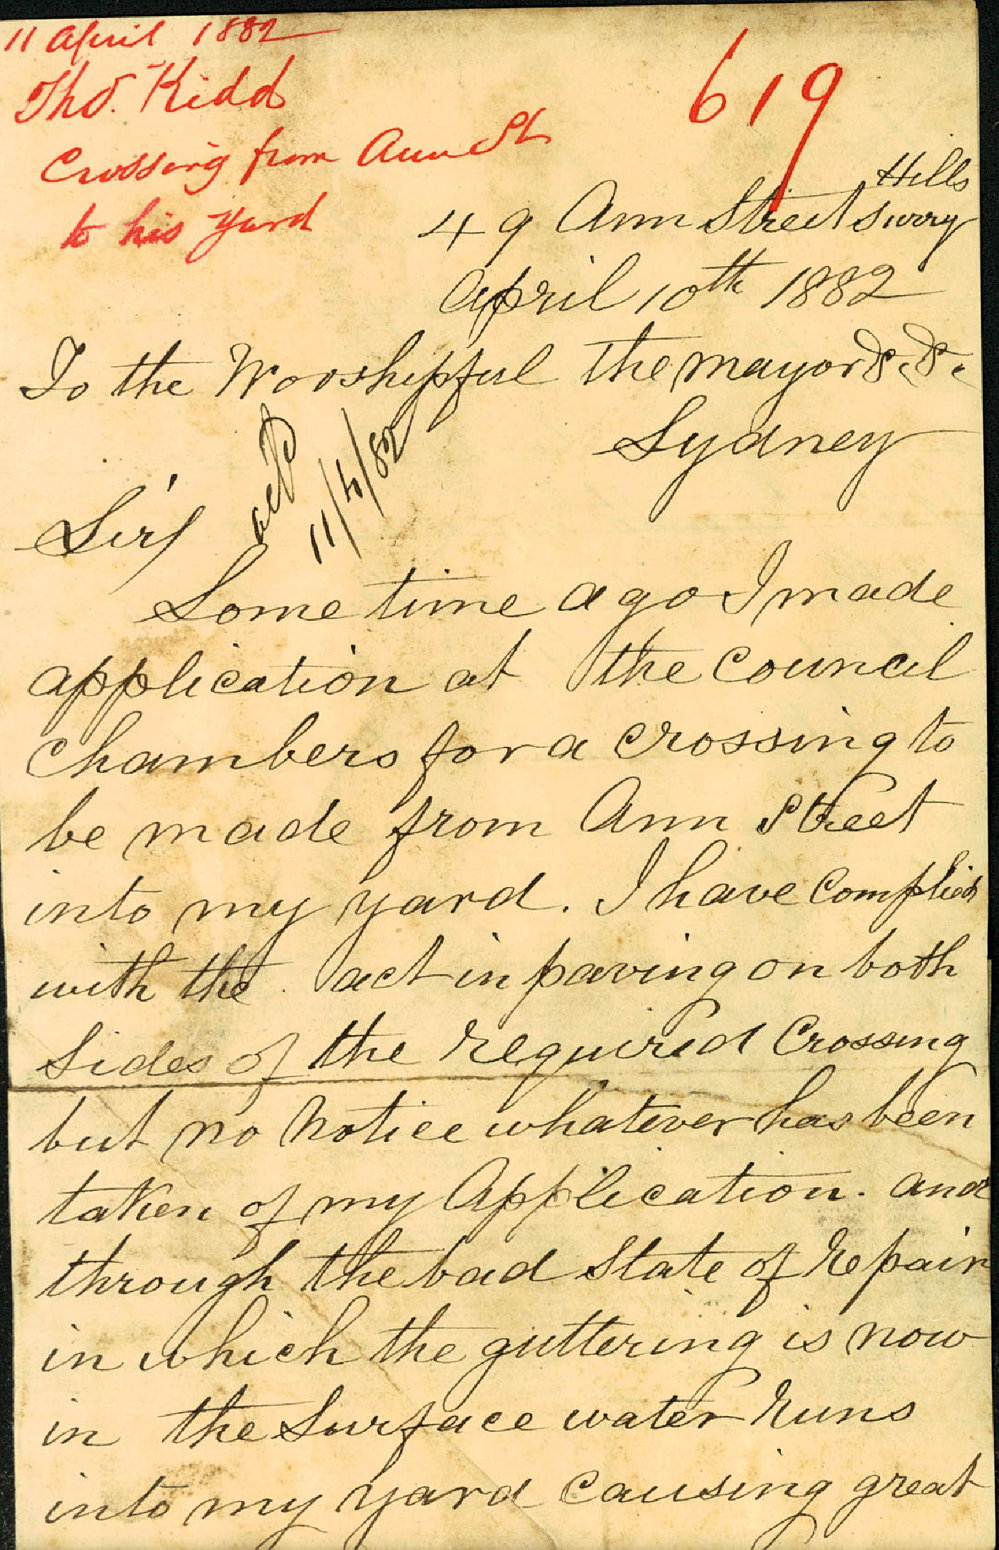 11 April 1882
Tho.s Kidd
Crossing from Ann St
to his yard
619
49 Ann Street Surry
Hills
April 10th 1882
To the Worshipful the mayor &. &.
Sydney
11/4/82
Sir/
Some time ago I made
application at the Council
Chambers for a Crossing to
be made from Ann Street
into my yard. I have Complied
with the act in paving on both
Sides of the required Crossing
but no notice whatever has been
taken of my Application. and
through the bad State of repair
in which the guttering is now
in the Surface water runs
into my yard causing great